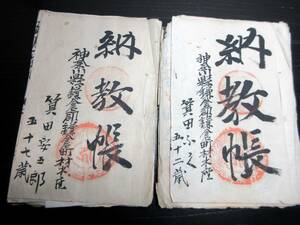 納教帳
神奈川縣鎌倉郡鎌倉町材木座
箕田
五十七歳
納教帳
神奈川縣鎌倉郡鎌倉町材木座
箕田ふく
五十二歳